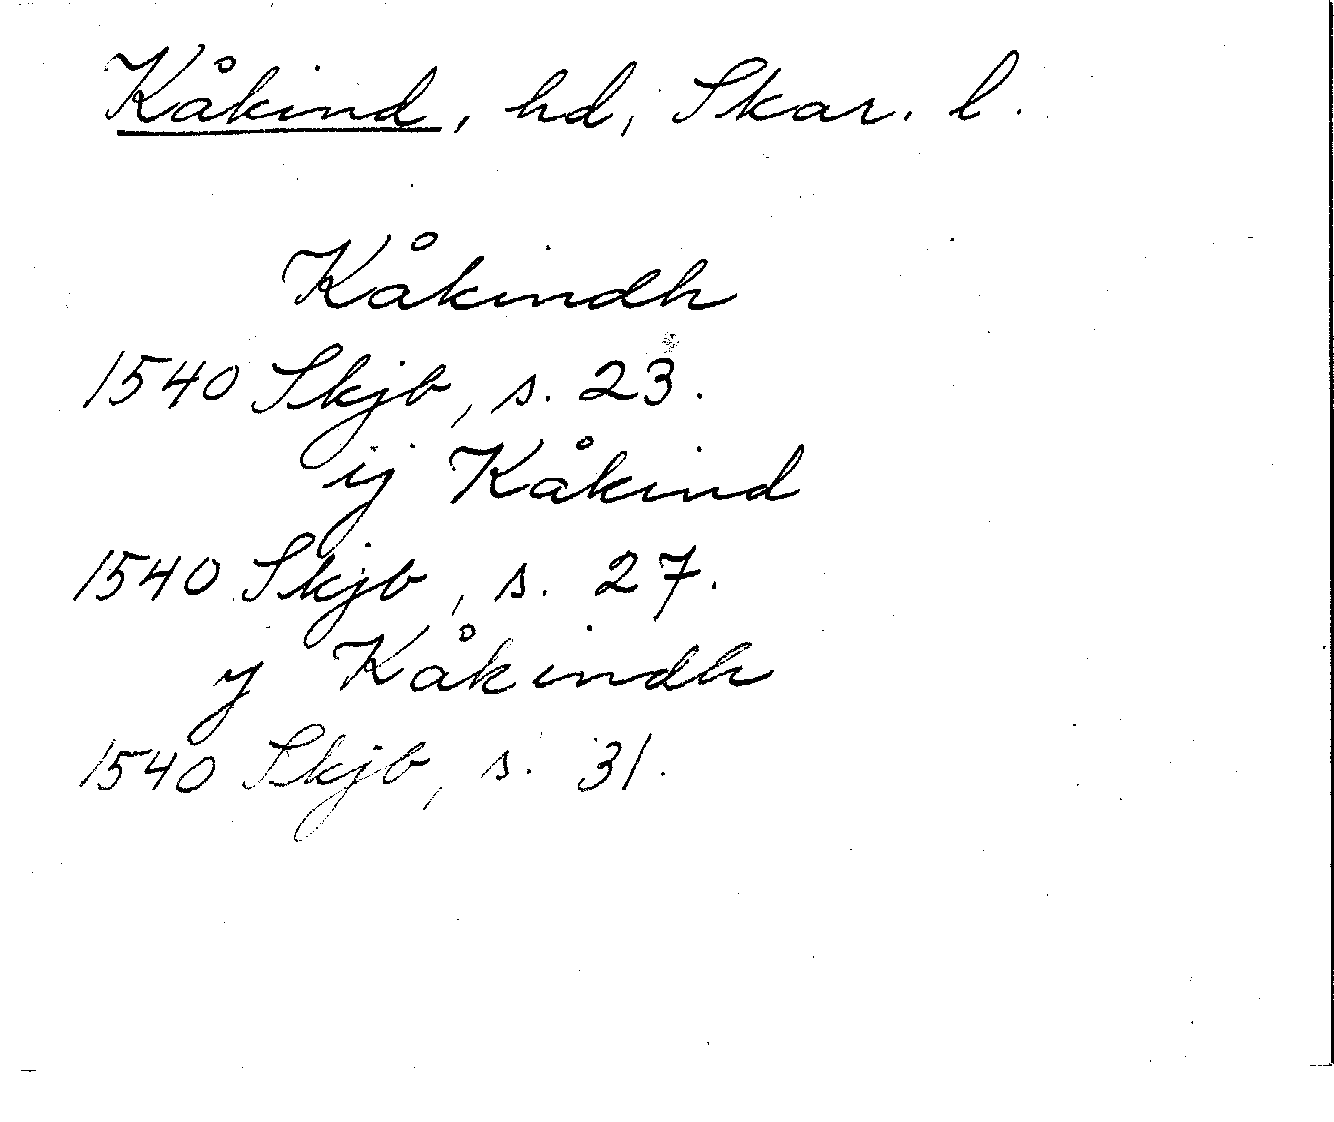 Kåkind, hd, Skar. l.
Kåkindh
1540 Skjb, s. 23.
ij Kåkind
1540 Skjb, s. 27.
y Kåkindh
1540 Skjb, s. 31.